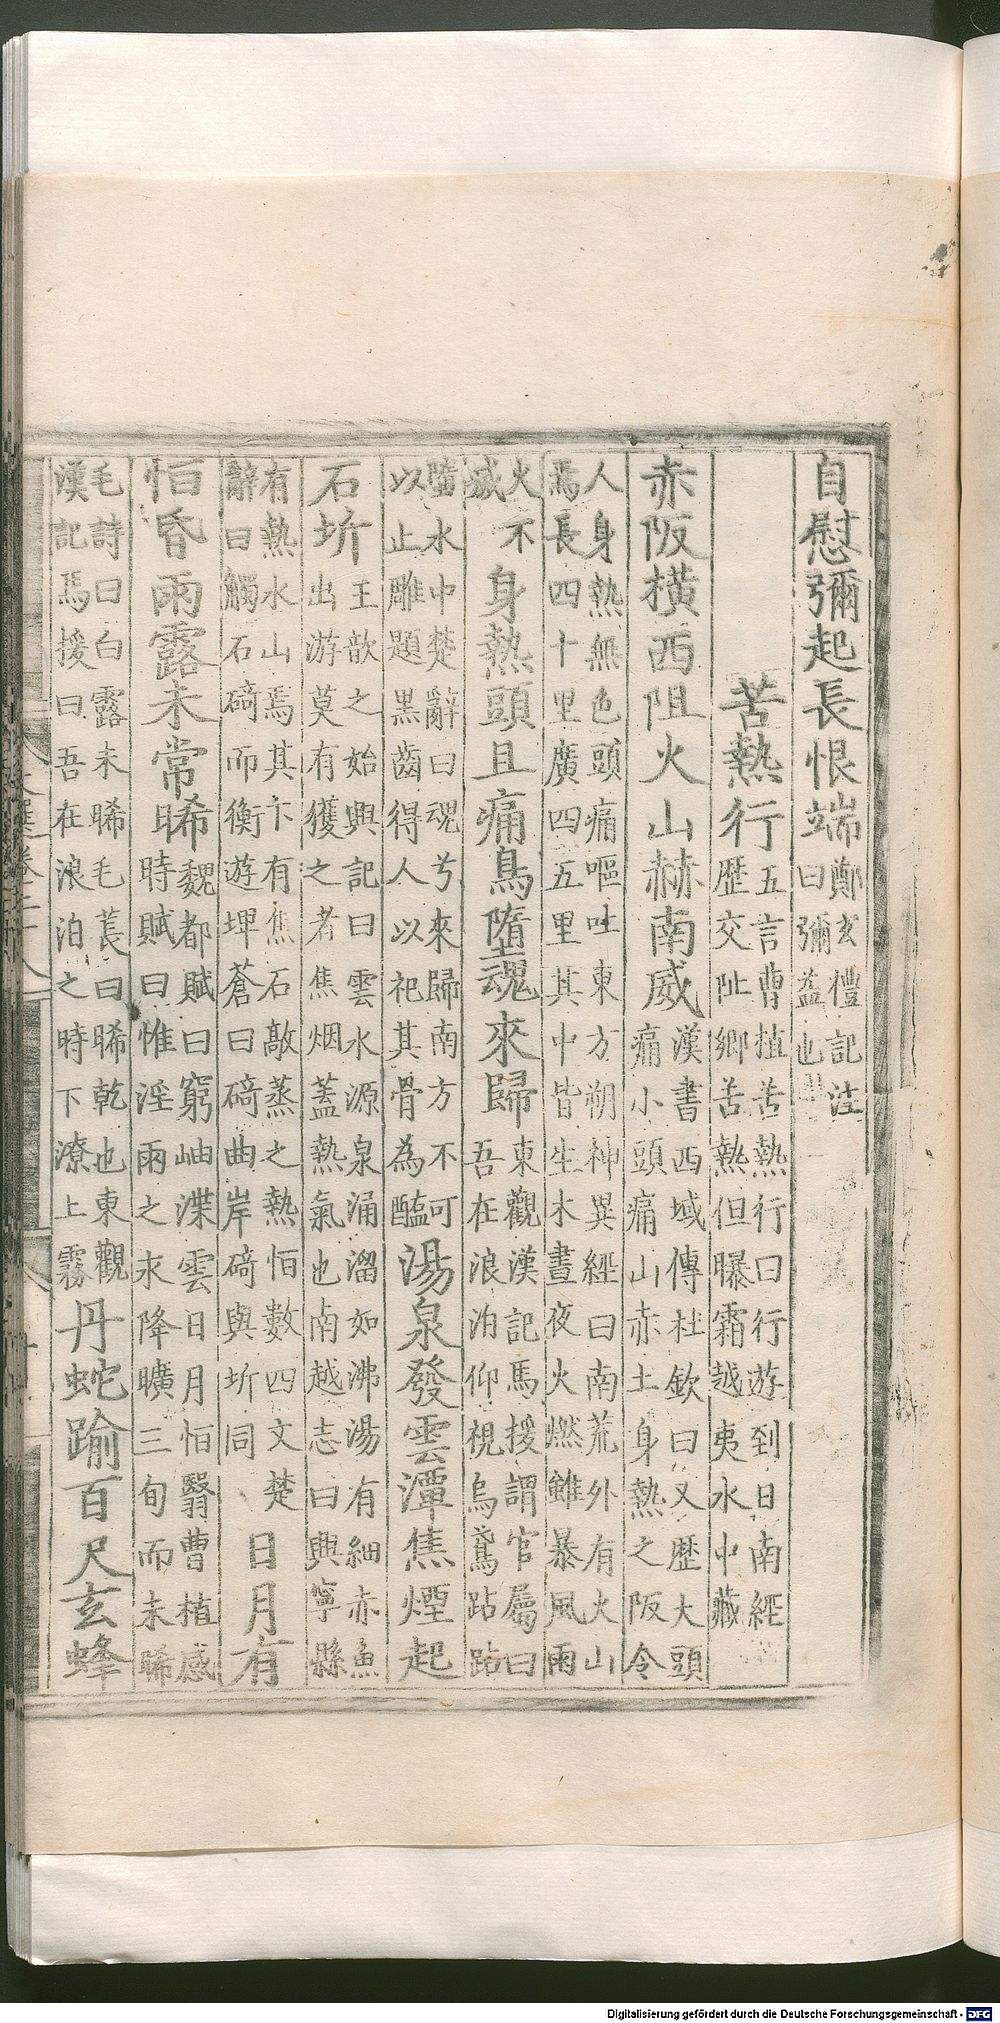 自慰彌起長恨端鄭玄禮記注曰彌益也
苦熱行五言曹植苦熱行曰行遊到日南經歷交阯鄉苦熱但曝霜越夷水中藏
赤阪橫西阻火山赫南威漢書西域傳杜欽曰又歷大頭痛小頭痛山赤土身熱之阪令
人身熱無色頭痛嘔吐東方朔神異經曰南荒外有火山焉長四十里廣四五里其中皆生木晝夜火燃雖暴風雨
火不滅身熱頭且痛鳥墮魂來歸東觀漢記馬援謂官屬曰吾在浪泊仰視烏鳶跕跕
墮水中楚辭曰魂兮來歸南方不可以止雕題黑齒得人以祀其骨為醢湯泉發雲潭焦煙起
石圻王歆之始興記曰雲水源泉涌溜如沸湯有細赤魚出游莫有獲之者焦烟蓋熱氣也南越志曰興寧縣
有熱水山焉其下有焦石歊蒸之熱恒數四丈楚辭曰觸石碕而衡遊埤蒼曰碕曲岸碕與圻同日月有
恒昏雨露未常晞魏都賦曰窮岫渫雲日月恒翳曹植感時賦曰惟淫雨之永降曠三旬而未晞
毛詩曰白露未晞毛萇曰晞乾也東觀漢記馬援曰吾在浪泊之時下潦上霧丹蛇踰百尺玄蜂
Digitalisierung gefördert durch die Deutsche Forschungsgemeinschaft - DFG